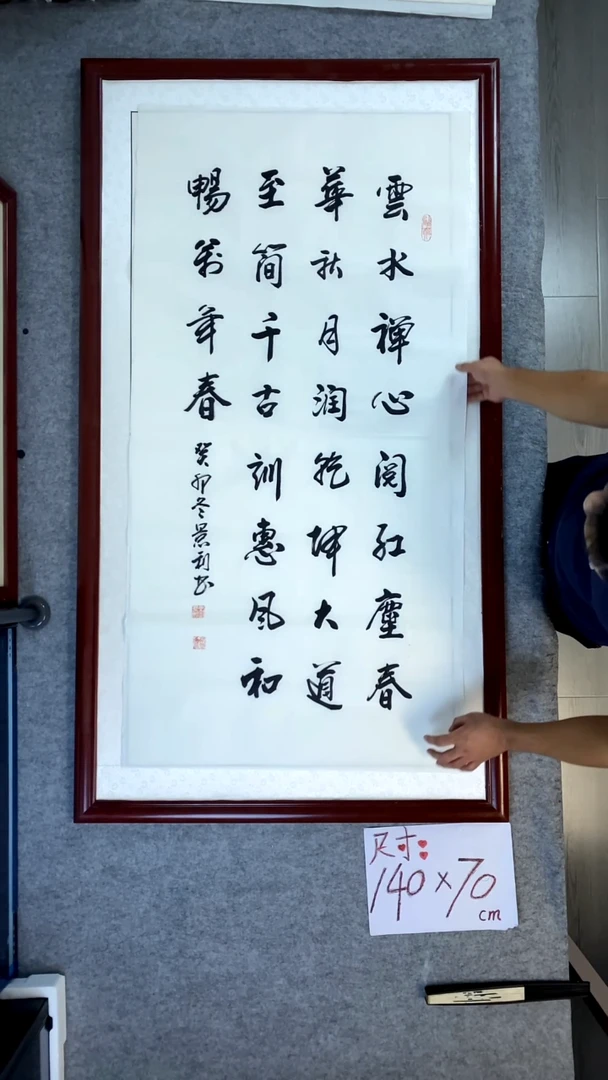 雲水禅心閲紅塵春
華秋月潤乾坤大道
至簡千古訓惠風和
暢萬年春
癸卯冬景利書
尺寸:
140×70
cm